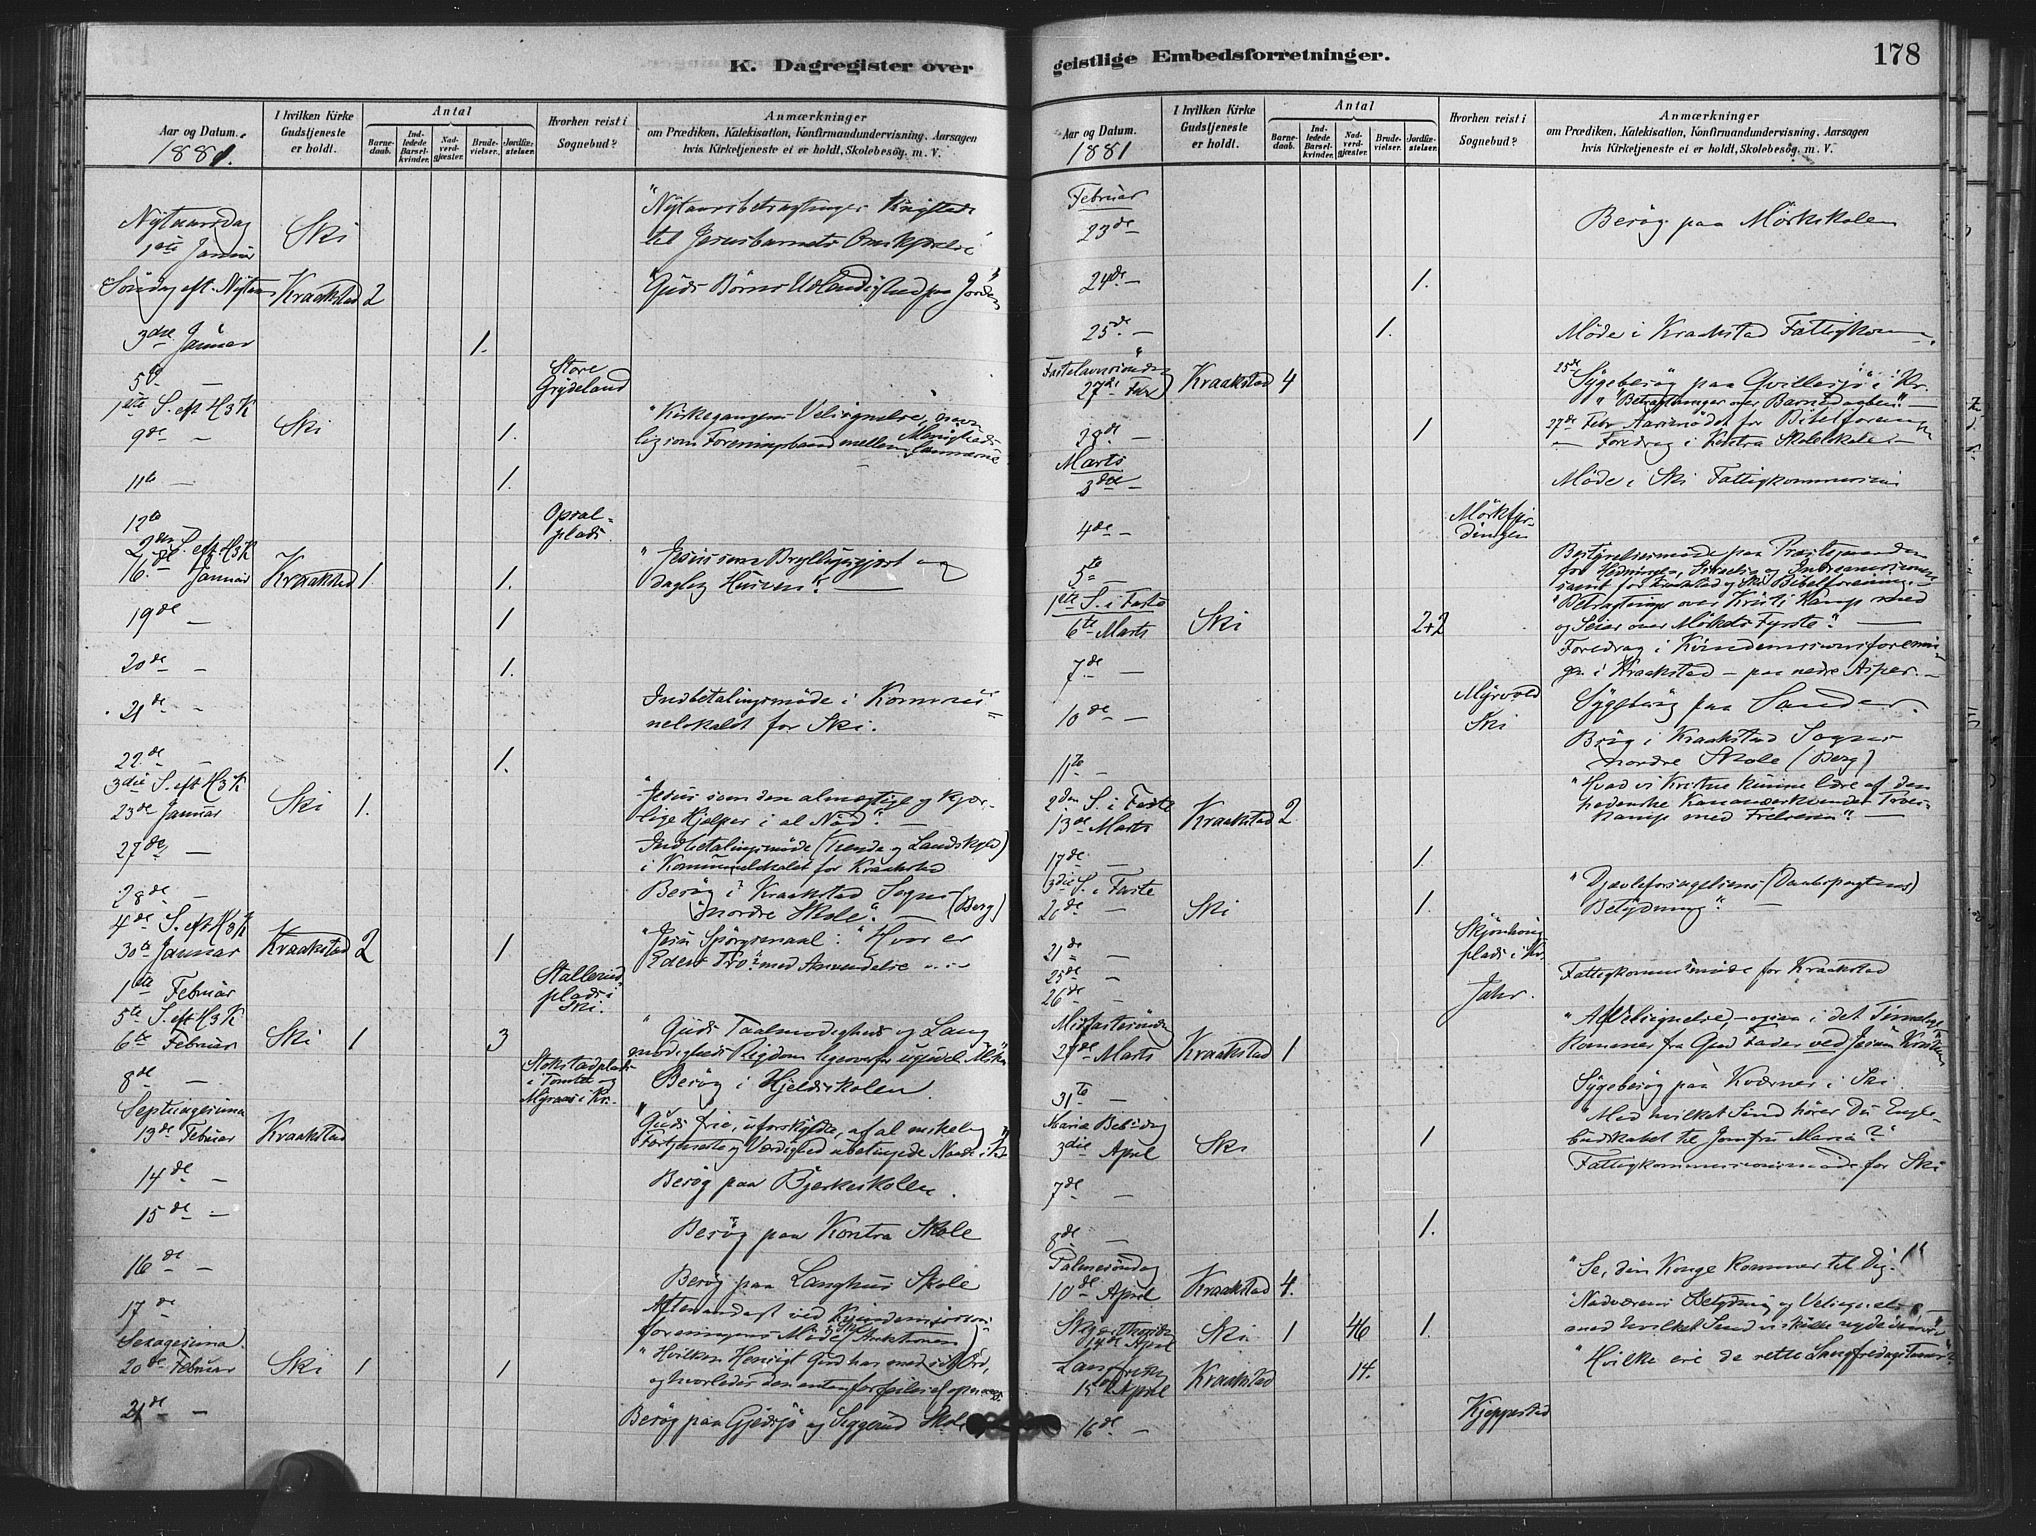 K. Dagregister over
Aar og Datum.
1881.
I hvilken Kirke
Gudstjeneste
er holdt.
Antal
Barne-
daab.
Ind-
ledede
Barsel-
kvinder.
Nad-
verd-
gjæster.
Brude-
vielser.
Jordfæ-
stelser.
Hvorhen reist i
Sognebud?
Anmærkninger
om Prædiken, Katekisation, Konfirmandundervisning, Aarsagen
hvis Kirketjeneste ei er holdt, Skolebesøg. m. V.
Nytaarsdag
1ste Januar Ski
"Nytaarsbetragtninger
til Jesusbarnets Omskjærelse
Søndag eft. Nytaar Kraakstad 2 "Guds Børns Udlændighed paa Jorden"
3die Januar 1.
5te — Store
Grydeland
1ste S. eft H3K
9de — Ski 1. "Kirkegangens Velsignelse,
som Foreningsbaand mellem Menigheds-
11te — 1.
12te Opsal-
plads
2den S. eft. H3K
16de Januar Kraakstad 1 1. "Jesus som Bryllupsgjest og
daglig Husven". —
19de — 1
20de — 1.
21de — Indbetalingsmøde i Kommu-
nelokalet for Ski.
22de — 1.
3die S. eft H3K
23de Januar Ski 1. "Jesus som den almægtige og kjær-
lige Hjelper i al Nød". —
27de — Indbetalingsmøde (Tiende og Landskyld)
i Kommunelokalet for Kraakstad
28de — Besøg i Kraakstad Sogns
nordre Skole". — (Berg)
4de S. eft H3K
30te Januar Kraakstad 2 1 "Jesu Spørgsmaal: "Hvor er
Eders Tro" med Anvendelse
1ste Februar Stallerud
plads i
Ski.
5te S. eft H3K
6te Februar Ski 1 3 "Guds Taalmodigheds og Lang
modigheds Rigdom ligeoverfor
8de — plads
i Tomter og
i Kr. Besøg i Hjeldskolen.
Septuagesima
13de Februar Kraakstad "Guds frie, uforskyldte, af al
Fortjeneste og Værdighed ubetingede Naade i
14de — Besøg paa Bjerkeskolen.
15de — Besøg paa Kontra Skole
16de — Besøg paa Langhus Skole
17de Aftenandagt ved Kvindemissions-
foreningens Møde
Sexagesima.
20de Februar Ski 1 1 "Hvilken Hensigt Gud har med sit Ord,
og hvorledes den enten forfeiles el. opnaaes".
21de — Besøg paa Gjedsjø og Siggerud Skole
geistlige Embedsforretninger.
178
Aar og Datum.
1881
I hvilken Kirke
Gudstjeneste
er holdt.
Antal
Barne-
daab.
Ind-
ledede
Barsel-
kvinder.
Nad-
verd-
gjæster.
Brude-
vielser.
Jordfæ-
stelser.
Hvorhen reist i
Sognebud?
Anmærkninger
om Prædiken, Katekisation, Konfirmandundervisning, Aarsagen
hvis Kirketjeneste ei er holdt, Skolebesøg. m. V.
Februar
23de — Besøg paa Mørkskolen
24de — 1.
25de — 1. Møde i Kraakstad Fattigkom—
Fastelavnssøndag
27de Febr Kraakstad 4 25de Sygebesøg paa Qvillesjø i Kr.
"Betragtninger over Barnedaaben". —
28de — 1 27de Febr Aarsmødet for Bibelforening
— Foredrag i Kontra Skolelokale —
Marts
3die — Møde i Ski Fattigkommission
4de — Mørkfjer-
dingen
5te — Bestyrelsesmøde paa Præstegaarden
for Hednings, og Indremissionen
samt for Kraakstad og Ski Bibelforening. —
1ste S. i Faste
6te Marts Ski 2+2 "Betragtninger over Kristi Kamp med
og Seier over Mørkets Fyrste". —
7de — Foredrag i Kvindemissionsforenin-
gen i Kraakstad — paa nedre Asper. —
10de — Myrvold
Ski Sygebesøg paa Sander.
11te — Besøg i Kraakstad Sogns
nordre Skole (Berg)
2den S. i Faste
13de Marts Kraakstad 2 "Hvad vi Kristne kunne lære af den
hedenske Kananæerkvindes Troes-
kamp med Frelseren". —
17de — 1.
3die S. i Faste
20de — Ski 1. "Djævleforsagelsens (Daabspagtens)
Betydning". —
21de — Skjønhoug
plads i Kr.
25de — Fattigkommissionsmøde for Kraakstad
26de — Jahr.
Midfastesøndag
27de Marts Kraakstad 1 "Al Velsignelse, — ogsaa i det Timelige
kommer fra Gud Fader ved Jesum Kristum
31te — Sygebesøg paa Kværner i Ski.
Maria Bebud.dag
3die April Ski 1 "Med hvilket Sind hører Du Engle-
budskabet til Jomfru Maria?"
7de — Fattigkommissionsmøde for Ski
8de — 1.
Palmesøndag
10de April Kraakstad 4. "Se, din Konge kommer til Dig!"
Skjærthorsdag
14de April Ski 1 46 1. "Nadverens Betydning og Velsignelse,
med hvilket Sind vi skulle nyde
Langfredag
15de April Kraakstad 14. "Hvilke ere de rette Langfredags
16de — Kjeppestad